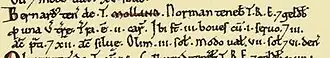 Bernard⁹ ten⁊ de .I. MOLLAND. Norman teneb̄ T.R.E. ⁊ geldb̄
ꝑ una v̄ træ. T̄ra . ē . II . car̄. Ibi st̄ . III . bou̅es cū . I . seruo . ⁊ . III .
ac̄ p̄ti . ⁊ . XII . ac̄ siluæ . Olim . III . sol̄. modo ual̄ . VII . sol̄ . ⁊ VI . den̄.